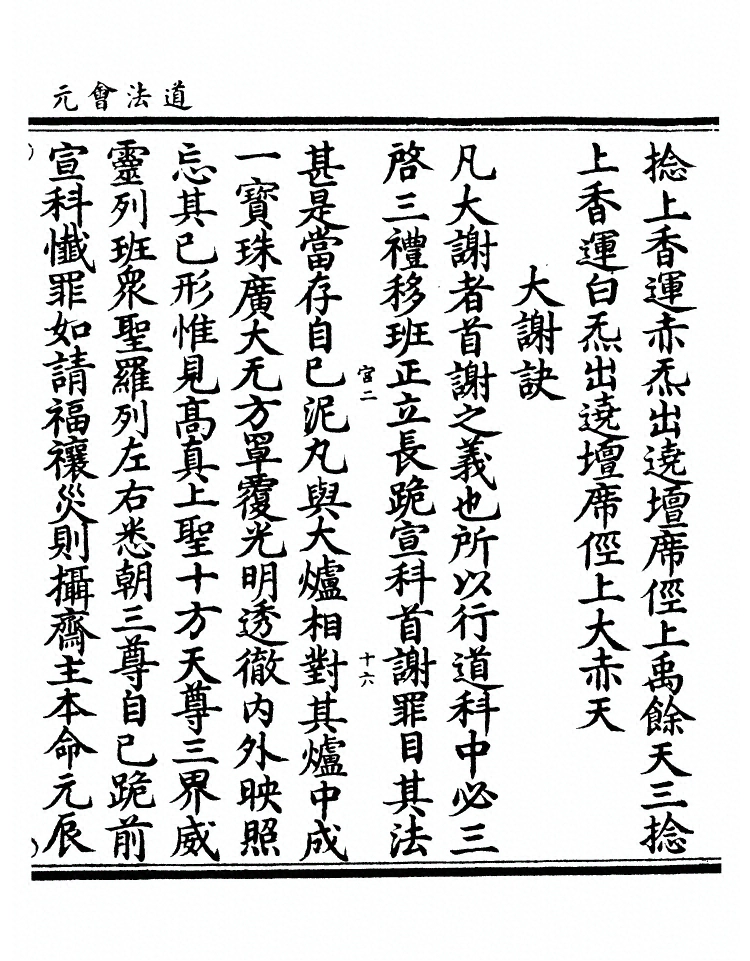 道法會元
捻上香運赤炁出遶壇席徑上禹餘天三捻
上香運白炁出遶壇席徑上大赤天
大謝訣
凡大謝者首謝之義也所以行道科中必三
啓三禮移班正立長跪宣科首謝罪目其法
宮二
十六
甚是當存自己泥丸與大爐相對其爐中成
一寶珠廣大无方罩覆光明透徹內外映照
忘其已形惟見髙真上聖十方天尊三界威
靈列班衆聖羅列左右悉朝三尊自己跪前
宣科懺罪如請福禳災則攝齋主本命元辰